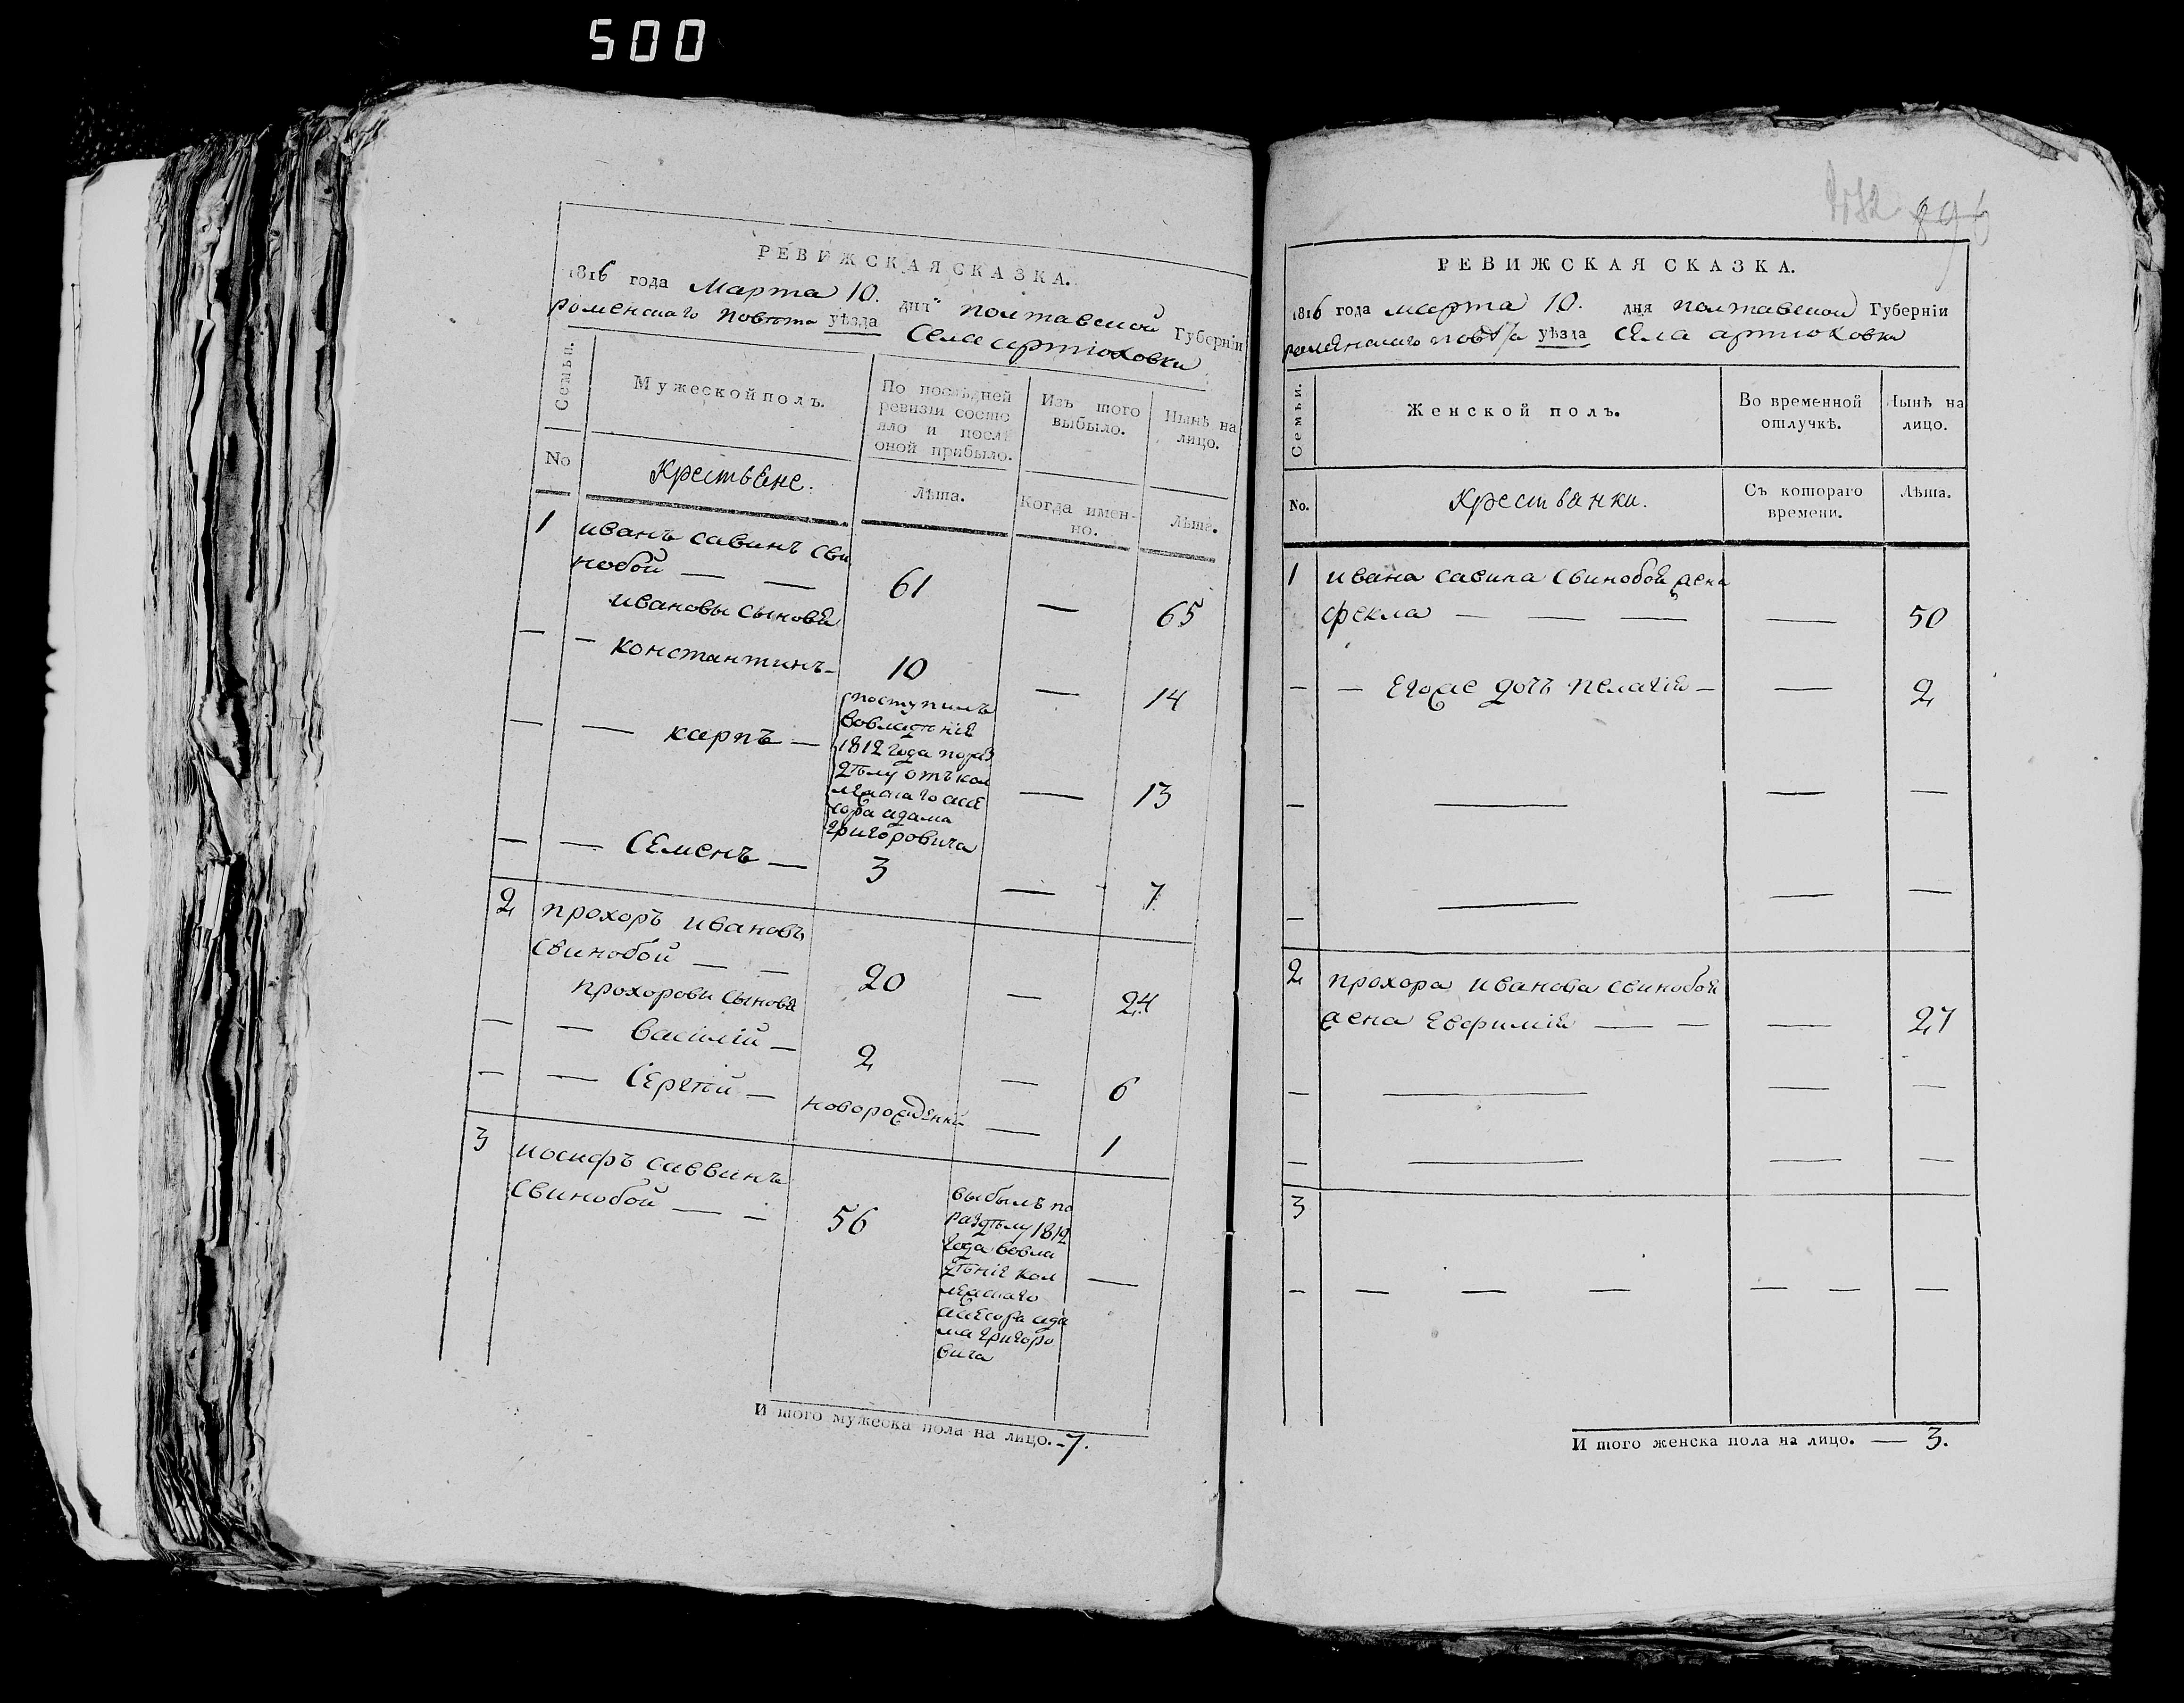 500
РЕВИЖСКАЯ СКАЗКА.
1816 года Марта 10. дня полтавской Губерніи
роменскаго повѣта уѣзда Села артюховки
Семьи.
Мужеской полъ.
По послѣдней ревизіи состояло и послѣ оной прибыло.
Изъ того выбыло.
Нынѣ на лицо.
No
Крестьяне.
Лѣта.
Когда именно.
Лѣта.
1 иванъ савинъ сви
нобой — — 61 — 65
ивановы сыновя
— — константинъ — 10 — 14
— — карпъ — поступилъ
вовладѣніе
1812 года пораз
дѣлу отъ кол
лежскаго асе
сора адама
григоровича — 13
— — Семенъ — 3 — 7
2 прохоръ ивановъ
свинобой — — 20 — 24
прохорови сыновя
— — Василій — 2 — 6
— — Сергѣй — новорожденній — 1
3 иосифъ саввинъ
Свинобой — — 56
выбылъ по
раздѣлу 1812
года вовла
дѣніе кол
лежскаго
асесора ада
ма григоро
вича —
И того мужеска пола на лицо. - 7.
896
РЕВИЖСКАЯ СКАЗКА.
1816 года марта 10. дня полтавской Губерніи
роменскаго повѣта уѣзда Села артюховки
Семьи.
Женской полъ.
Во временной отлучкѣ.
Нынѣ на лицо.
No.
Крестьянки.
Съ котораго времени.
Лѣта.
1 ивана савина свинобоя жена
фекла — — — — 50
— — Егоже дочь пелагія — — 2
— — — —
— — — —
2 прохора иванова свинобоя
жена Евфимія — — — 27
— — — —
— — — —
3
— — — — — — —
И того женска пола на лицо. — 3.